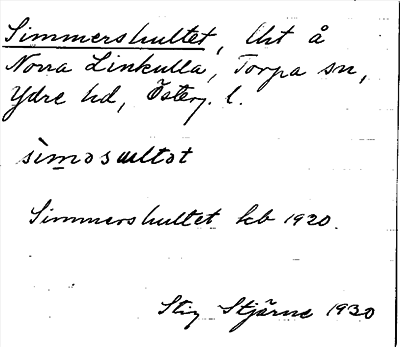 Simmershultet, lht å
Norra Linkulla, Torpa sn,
Ydre hd, Österg. l.
sìmǝsɯltǝt
Simmershultet kb 1920.
Stig Stjärne 1930